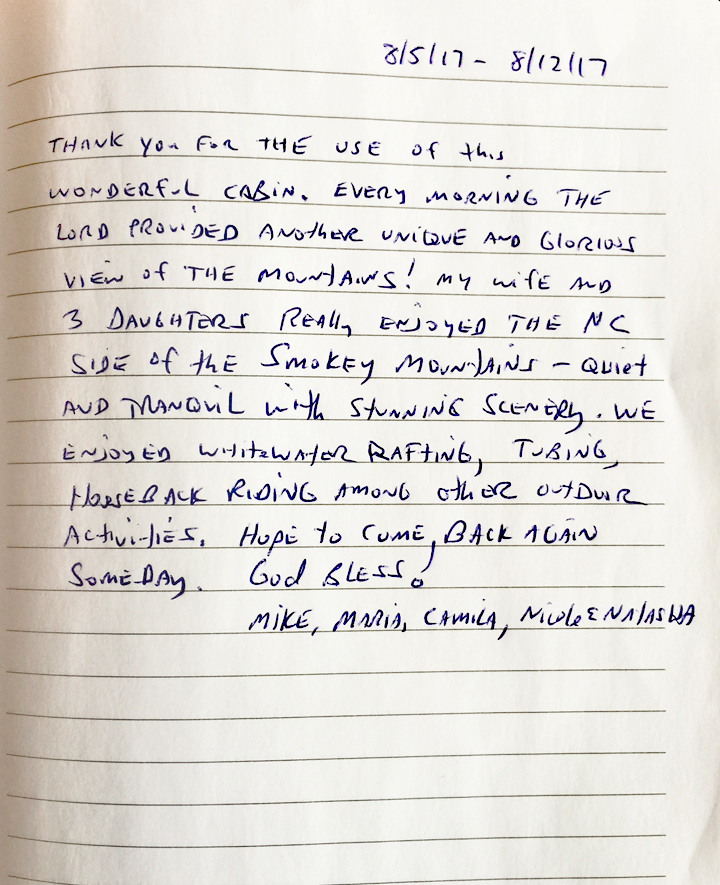 8/5/17 - 8/12/17
THANK you FOR THE USE of this
WONDERFUL CABIN. EVERY MORNING THE
LORD PROVIDED ANOTHER UNIQUE AND GLORIOUS
VIEW of THE MOUNTAINS! MY WIFE AND
3 DAUGHTERS REALLY ENJOYED THE NC
SIDE of the SMOKEY MOUNTAINS - QUIET
AND TRANQUIL with STUNNING SCENERY. WE
ENJOYED WHITEWATER RAFTING, TUBING,
HORSEBACK RIDING AMONG other OUTDOOR
ACTIVITIES. HOPE to COME BACK AGAIN
SOMEDAY. God BLESS!
MIKE, MARIA, CAMILA, Nicole & NATASHA